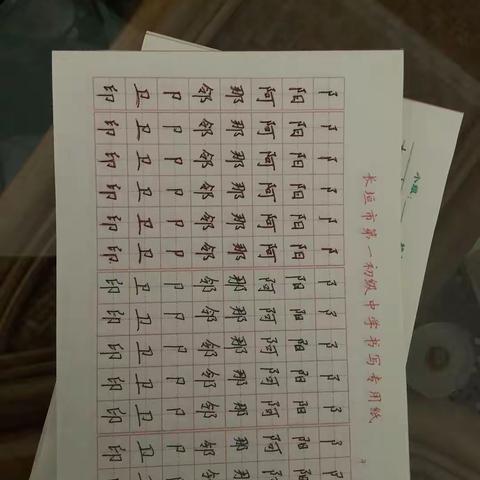 长垣市第一初级中学书写专用纸
阝阝阝阝阝阝阝阝阝阝阝阝阝
阳阳阳阳阳阳阳阳阳阳阳阳阳
阿阿阿阿阿阿阿阿阿阿阿阿阿
那那那那那那那那那那那那那
邻邻邻邻邻邻邻邻邻邻邻邻邻
卩卩卩卩卩卩卩卩卩卩卩卩卩
卫卫卫卫卫卫卫卫卫卫卫卫卫
印印印印印印印印印印印印印